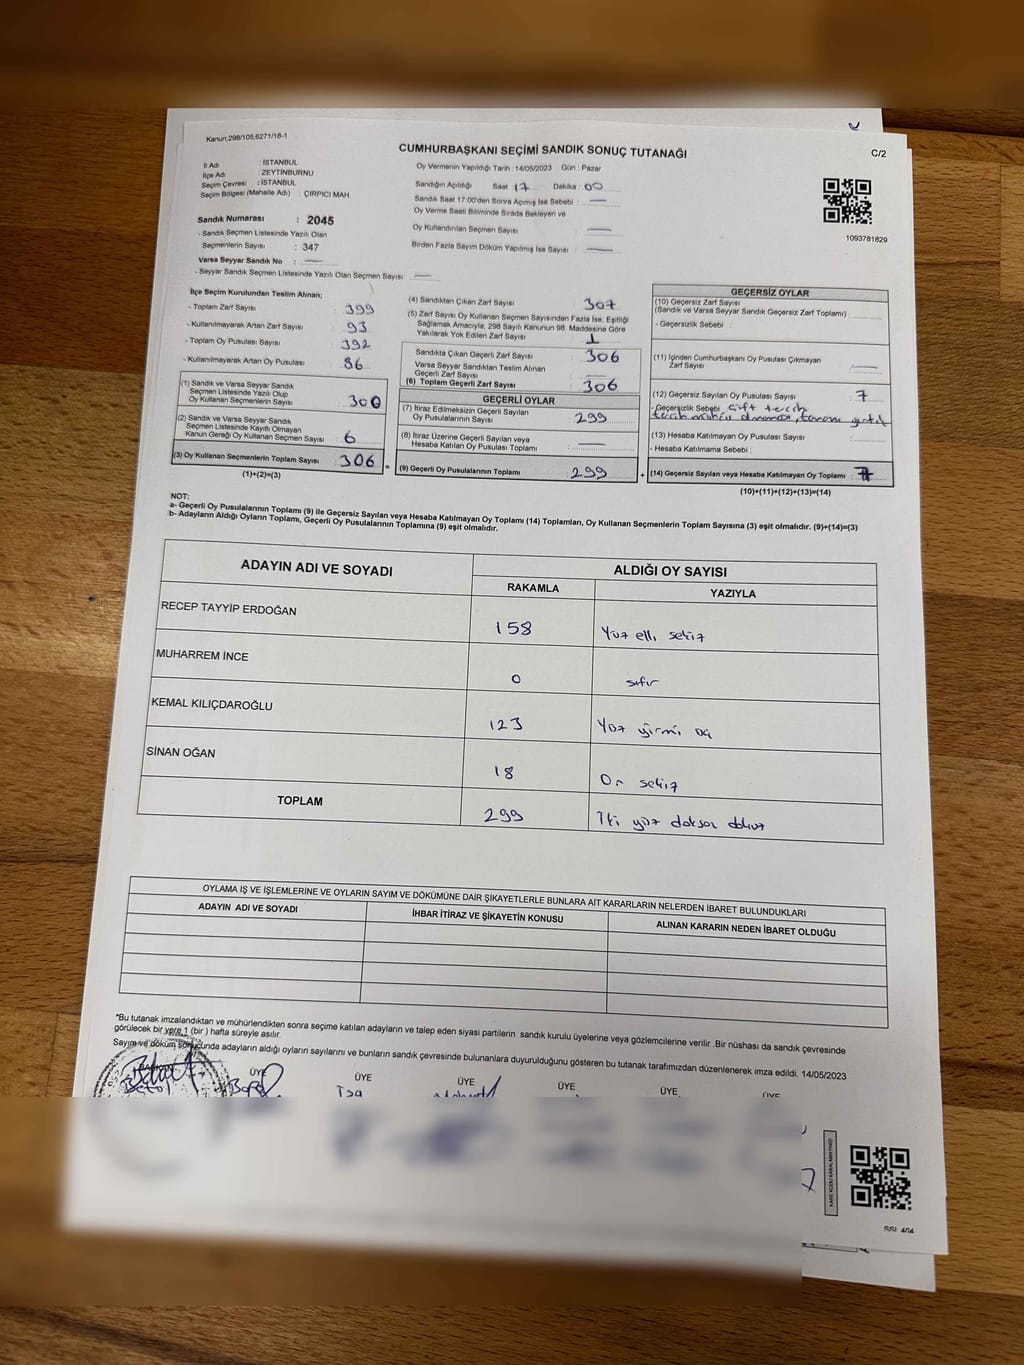 Kanun:298/105,6271/18-1
CUMHURBAŞKANI SEÇİMİ SANDIK SONUÇ TUTANAĞI
C/2
İl Adı : İSTANBUL
İlçe Adı : ZEYTİNBURNU
Seçim Çevresi : İSTANBUL
Seçim Bölgesi (Mahalle Adı) : ÇIRPICI MAH.
Sandık Numarası : 2045
- Sandık Seçmen Listesinde Yazılı Olan
Seçmenlerin Sayısı : 347
Varsa Seyyar Sandık No : —
- Seyyar Sandık Seçmen Listesinde Yazılı Olan Seçmen Sayısı : —
Oy Vermenin Yapıldığı Tarih : 14/05/2023 Gün : Pazar
Sandığın Açıldığı Saat 17 Dakika : 00
Sandık Saat 17:00'den Sonra Açılmış İse Sebebi : —
Oy Verme Saati Bitiminde Sırada Bekleyen ve
Oy Kullandırılan Seçmen Sayısı : —
Birden Fazla Sayım Döküm Yapılmış İse Sayısı : —
1093781829
İlçe Seçim Kurulundan Teslim Alınan;
- Toplam Zarf Sayısı : 399
- Kullanılmayarak Artan Zarf Sayısı : 93
- Toplam Oy Pusulası Sayısı : 392
- Kullanılmayarak Artan Oy Pusulası : 86
(1) Sandık ve Varsa Seyyar Sandık
Seçmen Listesinde Yazılı Olup
Oy Kullanan Seçmenlerin Sayısı : 300
(2) Sandık ve Varsa Seyyar Sandık
Seçmen Listesinde Kayıtlı Olmayan
Kanun Gereği Oy Kullanan Seçmen Sayısı : 6
(3) Oy Kullanan Seçmenlerin Toplam Sayısı : 306
(1)+(2)=(3)
(4) Sandıktan Çıkan Zarf Sayısı : 307
(5) Zarf Sayısı Oy Kullanan Seçmen Sayısından Fazla İse, Eşitliği
Sağlamak Amacıyla, 298 Sayılı Kanunun 98. Maddesine Göre
Yakılarak Yok Edilen Zarf Sayısı : 1
Sandıkta Çıkan Geçerli Zarf Sayısı : 306
Varsa Seyyar Sandıktan Teslim Alınan
Geçerli Zarf Sayısı :
(6) Toplam Geçerli Zarf Sayısı : 306
GEÇERLİ OYLAR
(7) İtiraz Edilmeksizin Geçerli Sayılan
Oy Pusulalarının Sayısı : 299
(8) İtiraz Üzerine Geçerli Sayılan veya
Hesaba Katılan Oy Pusulası Toplamı : —
=
(9) Geçerli Oy Pusulalarının Toplamı : 299
+
GEÇERSİZ OYLAR
(10) Geçersiz Zarf Sayısı
(Sandık ve Varsa Seyyar Sandık Geçersiz Zarf Toplamı) :
- Geçersizlik Sebebi :
(11) İçinden Cumhurbaşkanı Oy Pusulası Çıkmayan
Zarf Sayısı : —
(12) Geçersiz Sayılan Oy Pusulası Sayısı : 7
- Geçersizlik Sebebi : Çift tercih
tercih mührü olmaması, tamamı yırtık
(13) Hesaba Katılmayan Oy Pusulası Sayısı :
- Hesaba Katılmama Sebebi :
(14) Geçersiz Sayılan veya Hesaba Katılmayan Oy Toplamı : 7
(10)+(11)+(12)+(13)=(14)
NOT:
a- Geçerli Oy Pusulalarının Toplamı (9) ile Geçersiz Sayılan veya Hesaba Katılmayan Oy Toplamı (14) Toplamları, Oy Kullanan Seçmenlerin Toplam Sayısına (3) eşit olmalıdır. (9)+(14)=(3)
b- Adayların Aldığı Oyların Toplamı, Geçerli Oy Pusulalarının Toplamına (9) eşit olmalıdır.
ADAYIN ADI VE SOYADI
ALDIĞI OY SAYISI
RAKAMLA YAZIYLA
RECEP TAYYİP ERDOĞAN 158 Yüz elli sekiz
MUHARREM İNCE 0 sıfır
KEMAL KILIÇDAROĞLU 123 Yüz yirmi üç
SİNAN OĞAN 18 On sekiz
TOPLAM 299 İki yüz doksan dokuz
OYLAMA İŞ VE İŞLEMLERİNE VE OYLARIN SAYIM VE DÖKÜMÜNE DAİR ŞİKAYETLERLE BUNLARA AİT KARARLARIN NELERDEN İBARET BULUNDUKLARI
ADAYIN ADI VE SOYADI İHBAR İTİRAZ VE ŞİKAYETİN KONUSU ALINAN KARARIN NEDEN İBARET OLDUĞU
*Bu tutanak imzalandıktan ve mühürlendikten sonra seçime katılan adayların ve talep eden siyasi partilerin sandık kurulu üyelerine veya gözlemcilerine verilir .Bir nüshası da sandık çevresinde
görülecek bir yere 1 (bir ) hafta süreyle asılır.
Sayım ve döküm sonucunda adayların aldığı oyların sayılarını ve bunların sandık çevresinde bulunanlara duyurulduğunu gösteren bu tutanak tarafımızdan düzenlenerek imza edildi. 14/05/2023
ÜYE ÜYE ÜYE ÜYE ÜYE ÜYE
İsa